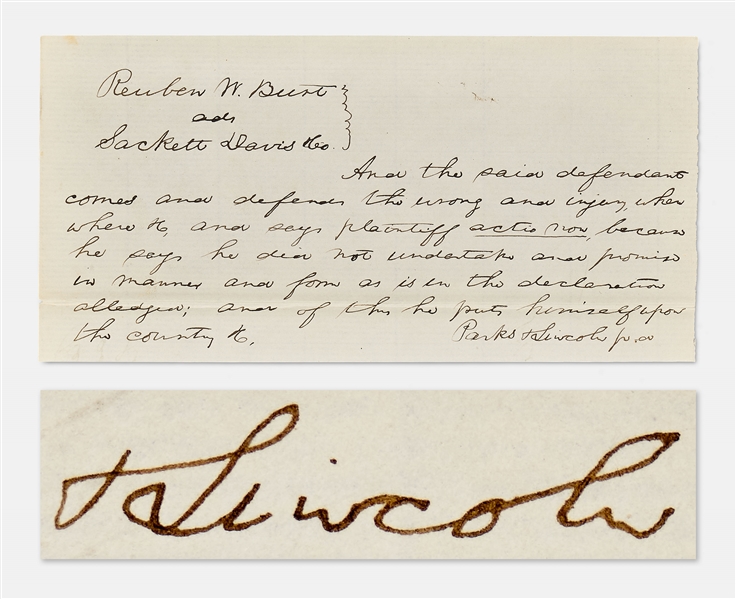 Reuben W. Burt
ads
Sackett Davis &Co.
And the said defendant
comes and defends the wrong and injury, when
where &c, and says plaintiff actio non, because
he says he did not undertake and promise
in manner and form as is in the declaration
alledged; and of this he puts himself upon
the country &c.
Parks & Lincoln p.d
& Lincoln